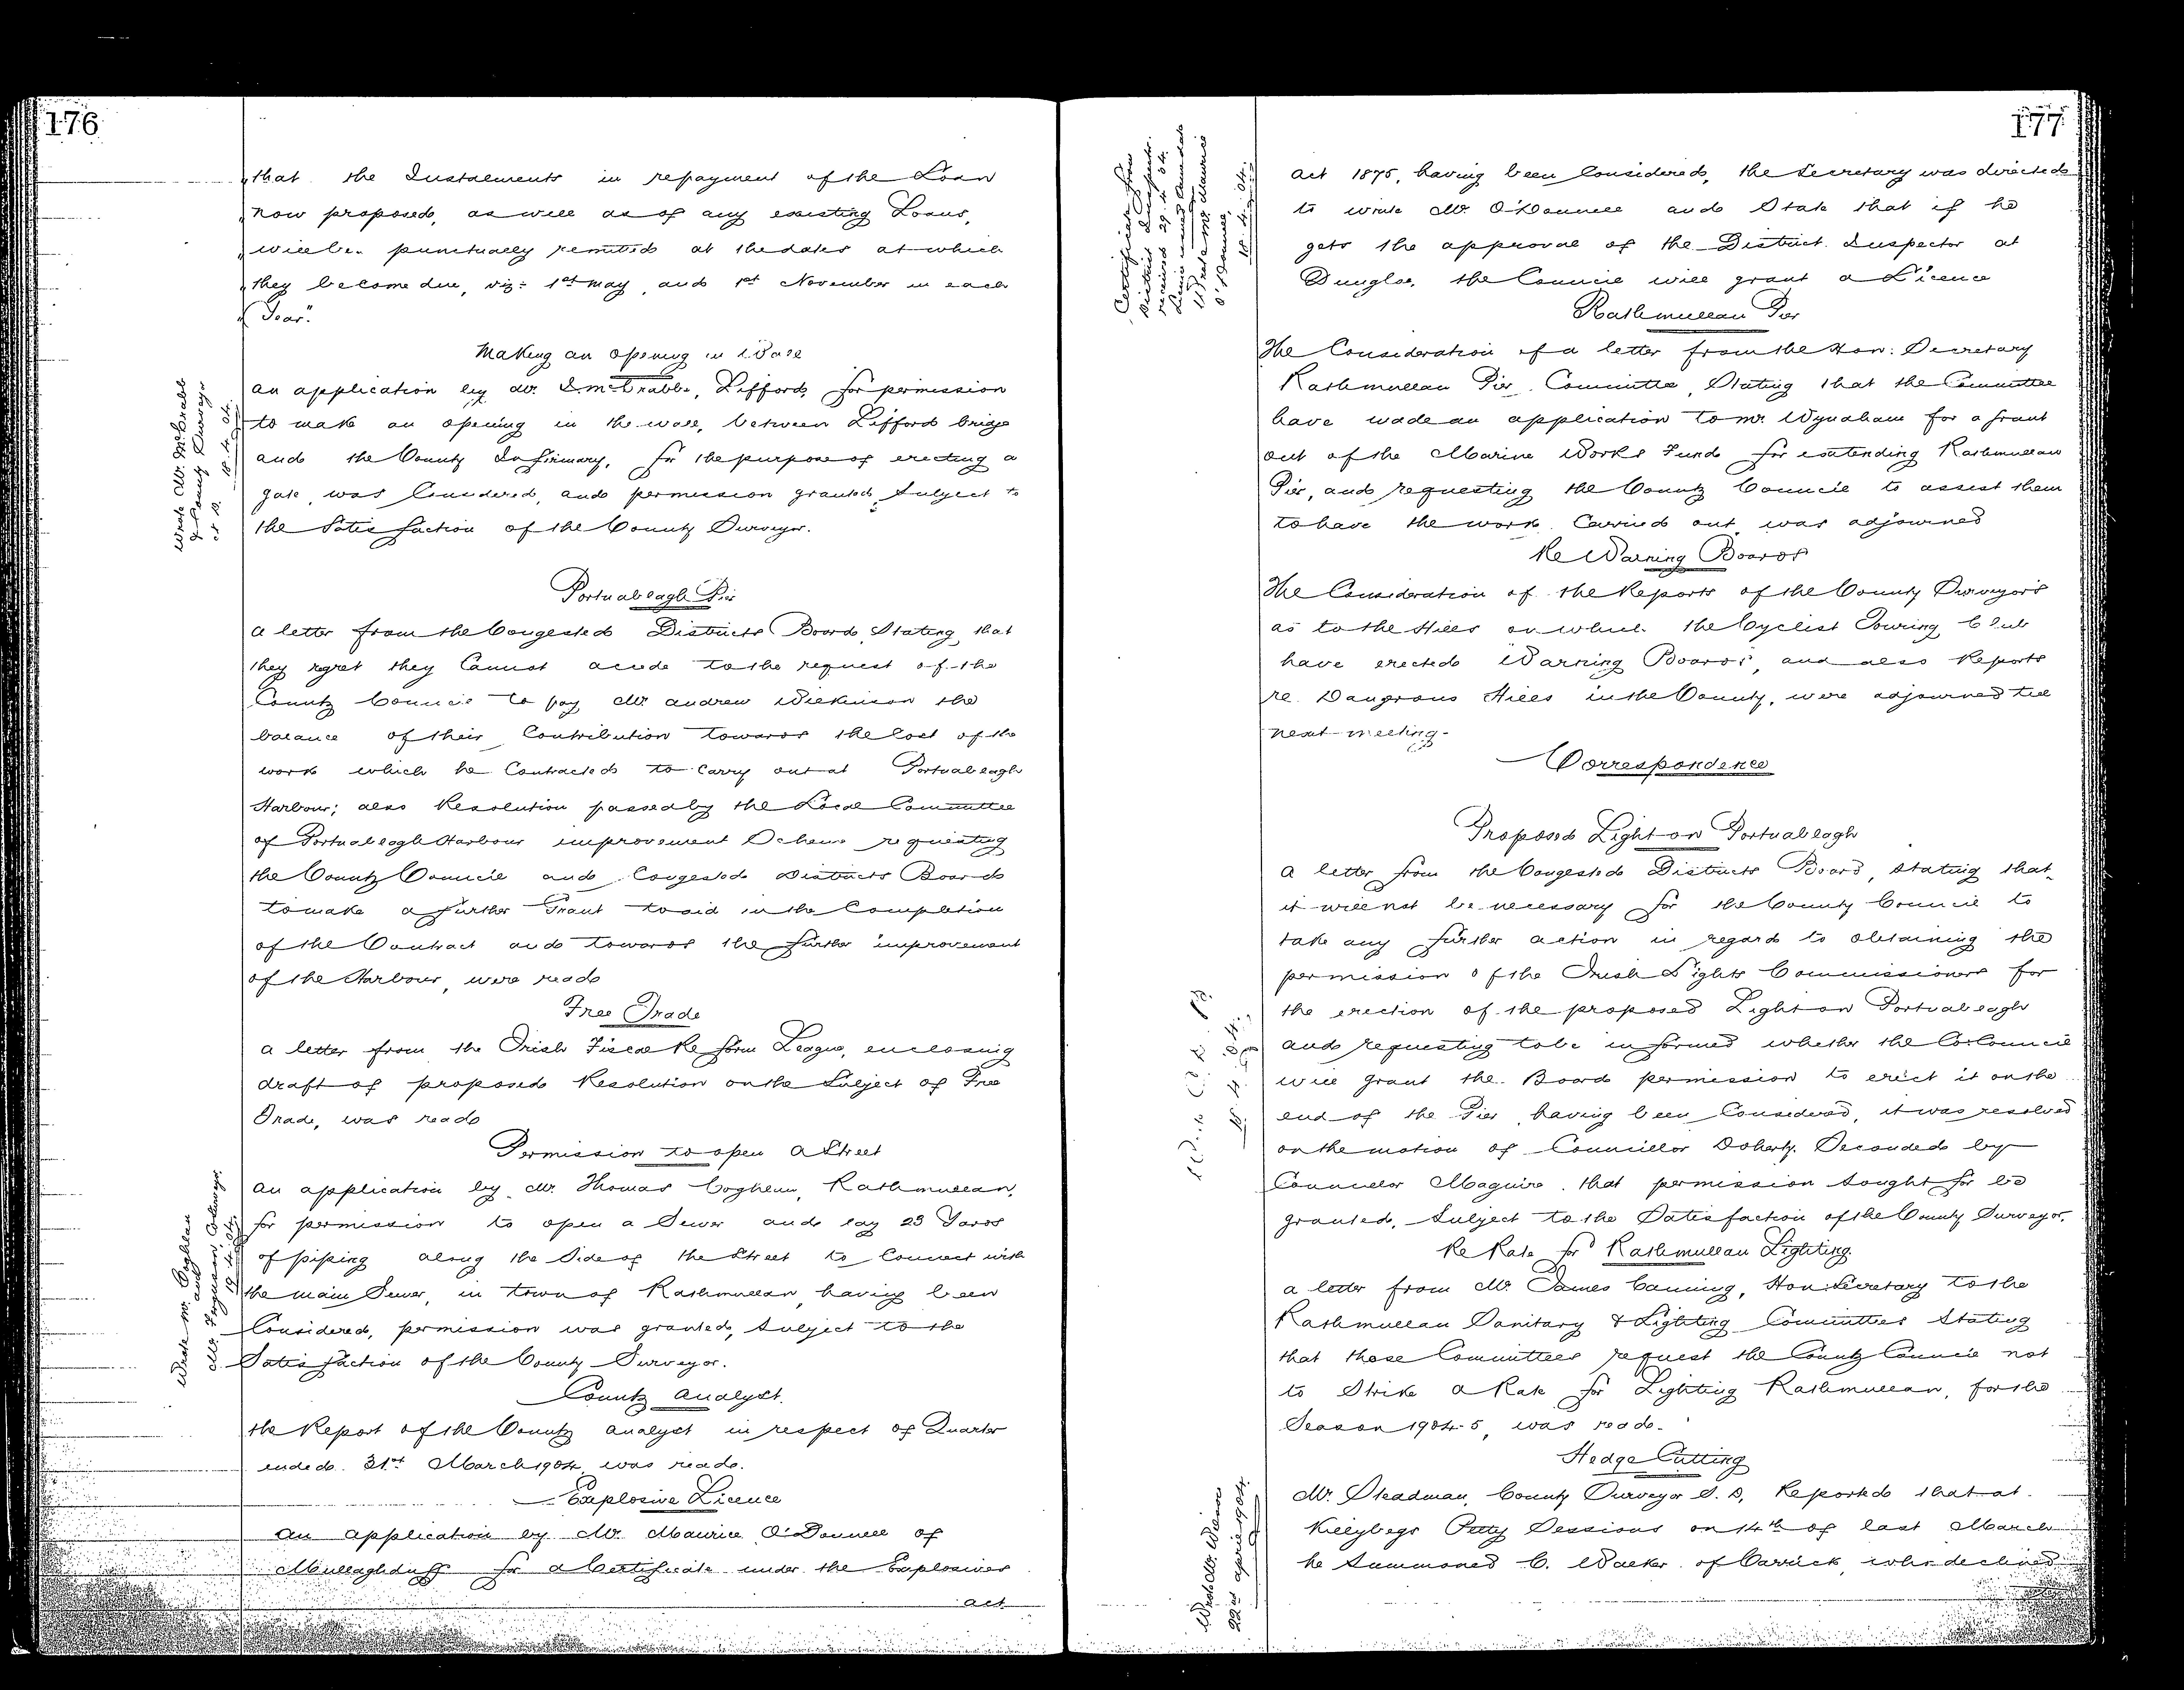 176
that the Instalments in repayment of the Loan
now proposed, as well as of any existing Loans,
will be punctually remitted at the dates at which
they become due, viz: 1st May and 1st November in each
Year."
Making an opening in Wall
An application by Mr. McCrabbe, Lifford, for permission
to make an opening in the wall, between Lifford bridge
and the County Infirmary, for the purpose of erecting a
gate, was Considered, and permission granted, Subject to
the Satisfaction of the County Surveyor.
Wrote Mr. McCrabbe
& County Surveyor
18. 4. 04.
Portnablagh Pier
A letter from the Congested Districts Board, Stating that
they regret they Cannot accede to the request of the
County Council to pay Mr Andrew Wilkinson the
balance of their Contribution towards the Cost of the
work which he Contracted to Carry out at Portnablagh
Harbour; also Resolution passed by the Local Committee
of Portnablagh Harbour improvement Scheme requesting
the County Council and Congested Districts Board
to make a further Grant to aid in the Completion
of the Contract and towards the further improvement
of the Harbour, were read
Free Trade
A letter from the Irish Fiscal Reform League, enclosing
draft of proposed Resolution on the Subject of Free
Trade, was read
Permission to open a Street
An application by Mr. Thomas Coghlin, Rathmullan,
for permission to open a Sewer and lay 23 Yards
of piping along the Side of the Street to Connect with
the main Sewer, in town of Rathmullan, having been
Considered, permission was granted, Subject to the
Satisfaction of the County Surveyor.
Wrote Mr. Coghlin
and
County Analyst.
The Report of the County Analyst in respect of Quarter
ended 31st March 1904 was read.
Explosive Licence
An application by Mr. Maurice O'Donnell of
Mullaghduff for a Certificate under the Explosives
Act
177
Act 1875, having been Considered, the Secretary was directed
to write Mr. O'Donnell and State that if he
gets the approval of the District Inspector at
Dungloe, the Council will grant a Licence
Certificate from
District Inspector
received 29. 4. 04.
Wrote Mr. Maurice
O'Donnell,
18. 4. 04.
Rathmullan Pier
The Consideration of a letter from the Hon: Secretary
Rathmullan Pier Committee, Stating that the Committee
have made an application to Mr. Wyndham for a Grant
out of the Marine Works Fund for extending Rathmullan
Pier, and requesting the County Council to assist them
to have the work Carried out was adjourned
Re Warning Boards
The Consideration of the Reports of the County Surveyors
as to the Hills on which the Cyclist Touring Club
have erected Warning Boards, and also Reports
re Dangrous Hills in the County, were adjourned till
next meeting.
Correspondence
Proposed Light on Portnablagh
A letter from the Congested Districts Board, Stating that
it will not be necessary for the County Council to
take any further action in regard to obtaining the
permission of the Irish Lights Commissioners for
the erection of the proposed Light on Portnablagh
and requesting to be informed whether the Co: Council
will grant the Board permission to erect it on the
end of the Pier, having been Considered, it was resolved
on the motion of Councillor Doherty, Seconded by
Councillor Maguire, that permission sought for be
granted, Subject to the Satisfaction of the County Surveyor.
Re Rate for Rathmullan Lighting.
A letter from Mr. James Canning, Hon: Secretary to the
Rathmullan Sanitary & Lighting Committees Stating
that these Committees request the County Council not
to Strike a Rate for Lighting Rathmullan, for the
Season 1904-5, was read.
Hedge Cutting
Mr. Steadman, County Surveyor S. D, Reported that at
Killybegs Petty Sessions on 14th of last March
he Summoned C. Walker of Carrick, who declined
Wrote Mr. Wilson
22nd April 1904.